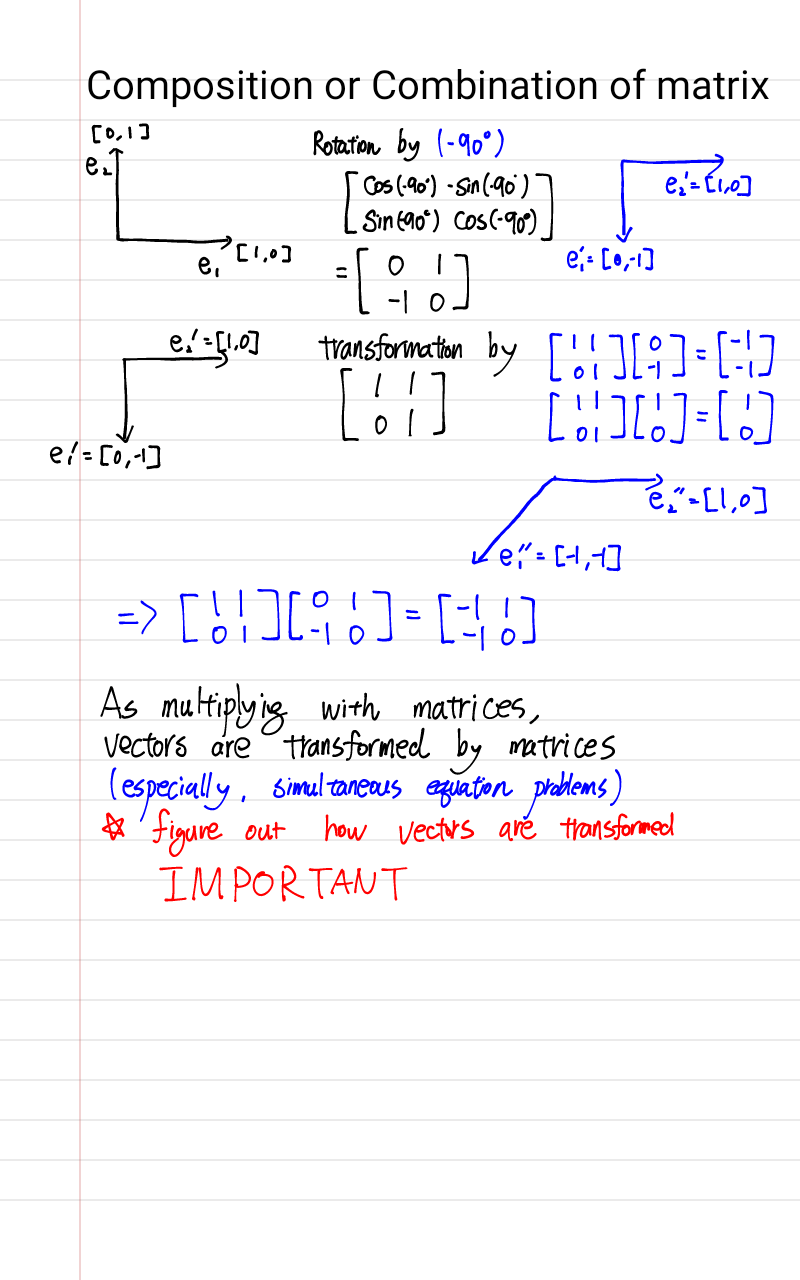 Composition or Combination of matrix
[0,1]
e₂
e₁ [1,0]
Rotation by (-90°)
[Cos(-90°) -Sin(-90°)]
[Sin(-90°) Cos(-90°)]
= [0 1]
[-1 0]
e₂' = [1,0]
e₁' = [0,-1]
e₂' = [1,0]
e₁' = [0,-1]
transformation by
[1 1]
[0 1]
[1 1][0] = [-1]
[0 1][-1] [-1]
[1 1][1] = [1]
[0 1][0] [0]
e₂'' = [1,0]
e₁'' = [-1,-1]
=> [1 1][0 1] = [-1 1]
[0 1][-1 0] [-1 0]
As multiplyig with matrices,
vectors are transformed by matrices
(especially, simultaneous equation problems)
☆ figure out how vectors are transformed
IMPORTANT